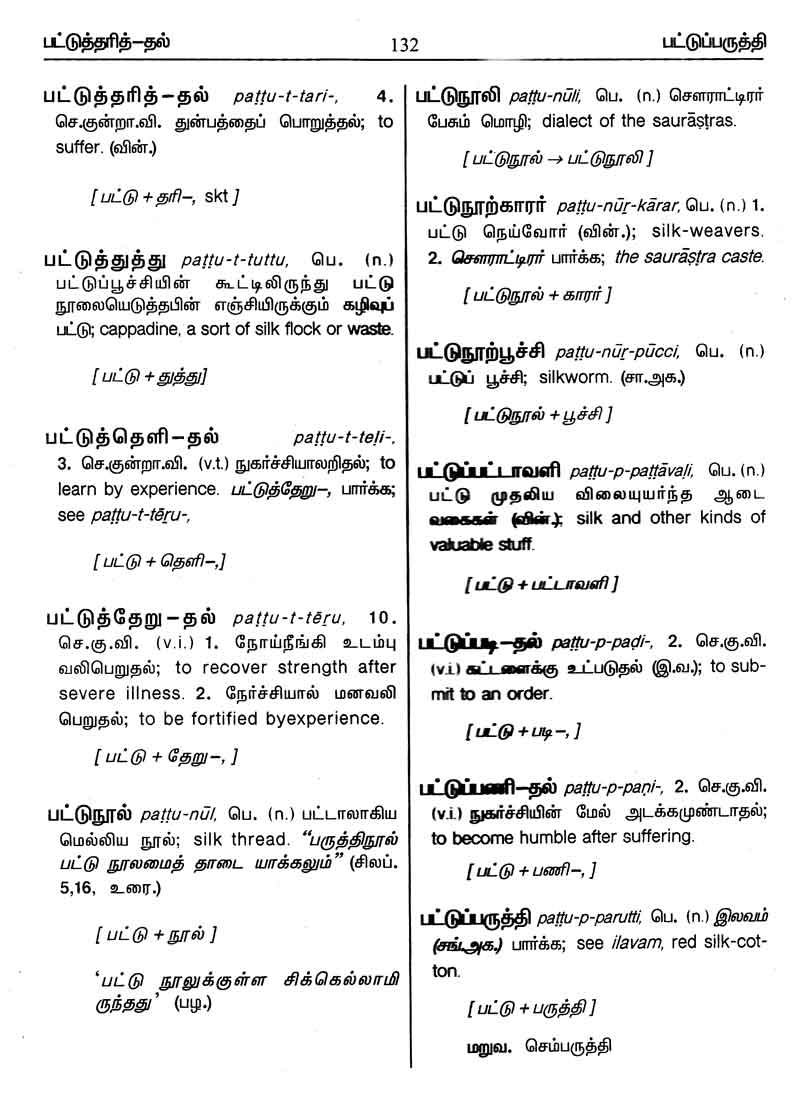 பட்டுத்தரித்-தல் 132 பட்டுப்பருத்தி
பட்டுத்தரித்-தல் paṭṭu-t-tari-, 4.
செ.குன்றா.வி. துன்பத்தைப் பொறுத்தல்; to
suffer. (வின்.)
[பட்டு + தரி-, skt ]
பட்டுத்துத்து paṭṭu-t-tuttu, பெ. (n.)
பட்டுப்பூச்சியின் கூட்டிலிருந்து பட்டு
நூலையெடுத்தபின் எஞ்சியிருக்கும் கழிவுப்
பட்டு; cappadine, a sort of silk flock or waste.
[பட்டு + துத்து]
பட்டுத்தெளி-தல் paṭṭu-t-teḷi-,
3. செ.குன்றா.வி. (v.t.) நுகர்ச்சியாலறிதல்; to
learn by experience. பட்டுத்தேறு-, பார்க்க;
see paṭṭu-t-tēṟu-,
[பட்டு + தெளி-,]
பட்டுத்தேறு-தல் paṭṭu-t-tēṟu, 10.
செ.கு.வி. (v.i.) 1. நோய்நீங்கி உடம்பு
வலிபெறுதல்; to recover strength after
severe illness. 2. நேர்ச்சியால் மனவலி
பெறுதல்; to be fortified byexperience.
[பட்டு + தேறு-, ]
பட்டுநூல் paṭṭu-nūl, பெ. (n.) பட்டாலாகிய
மெல்லிய நூல்; silk thread. “பருத்திநூல்
பட்டு நூலமைத் தாடை யாக்கலும்” (சிலப்.
5,16, உரை.)
[பட்டு + நூல் ]
‘பட்டு நூலுக்குள்ள சிக்கெல்லாமி
ருந்தது’ (பழ.)
பட்டுநூலி paṭṭu-nūli, பெ. (n.) சௌராட்டிரர்
பேசும் மொழி; dialect of the saurāṣṭras.
[பட்டுநூல் → பட்டுநூலி ]
பட்டுநூற்காரர் paṭṭu-nūṟ-kārar, பெ. (n.) 1.
பட்டு நெய்வோர் (வின்.); silk-weavers.
2. சௌராட்டிரர் பார்க்க; the saurāṣṭra caste.
[பட்டுநூல் + காரர் ]
பட்டுநூற்பூச்சி paṭṭu-nūṟ-pūcci, பெ. (n.)
பட்டுப் பூச்சி; silkworm. (சா.அக.)
[பட்டுநூல் + பூச்சி ]
பட்டுப்பட்டாவளி paṭṭu-p-paṭṭāvaḷi, பெ. (n.)
பட்டு முதலிய விலையுயர்ந்த ஆடை
வகைகள் (வின்.); silk and other kinds of
valuable stuff.
[பட்டு + பட்டாவளி ]
பட்டுப்படி-தல் paṭṭu-p-paḍi-, 2. செ.கு.வி.
(v.i.) கட்டளைக்கு உட்படுதல் (இ.வ.); to sub-
mit to an order.
[பட்டு + படி-, ]
பட்டுப்பணி-தல் paṭṭu-p-paṇi-, 2. செ.கு.வி.
(v.i.) நுகர்ச்சியின் மேல் அடக்கமுண்டாதல்;
to become humble after suffering.
[பட்டு + பணி-, ]
பட்டுப்பருத்தி paṭṭu-p-parutti, பெ. (n.) இலவம்
(சங்.அக.) பார்க்க; see ilavam, red silk-cot-
ton.
[பட்டு + பருத்தி ]
மறுவ. செம்பருத்தி